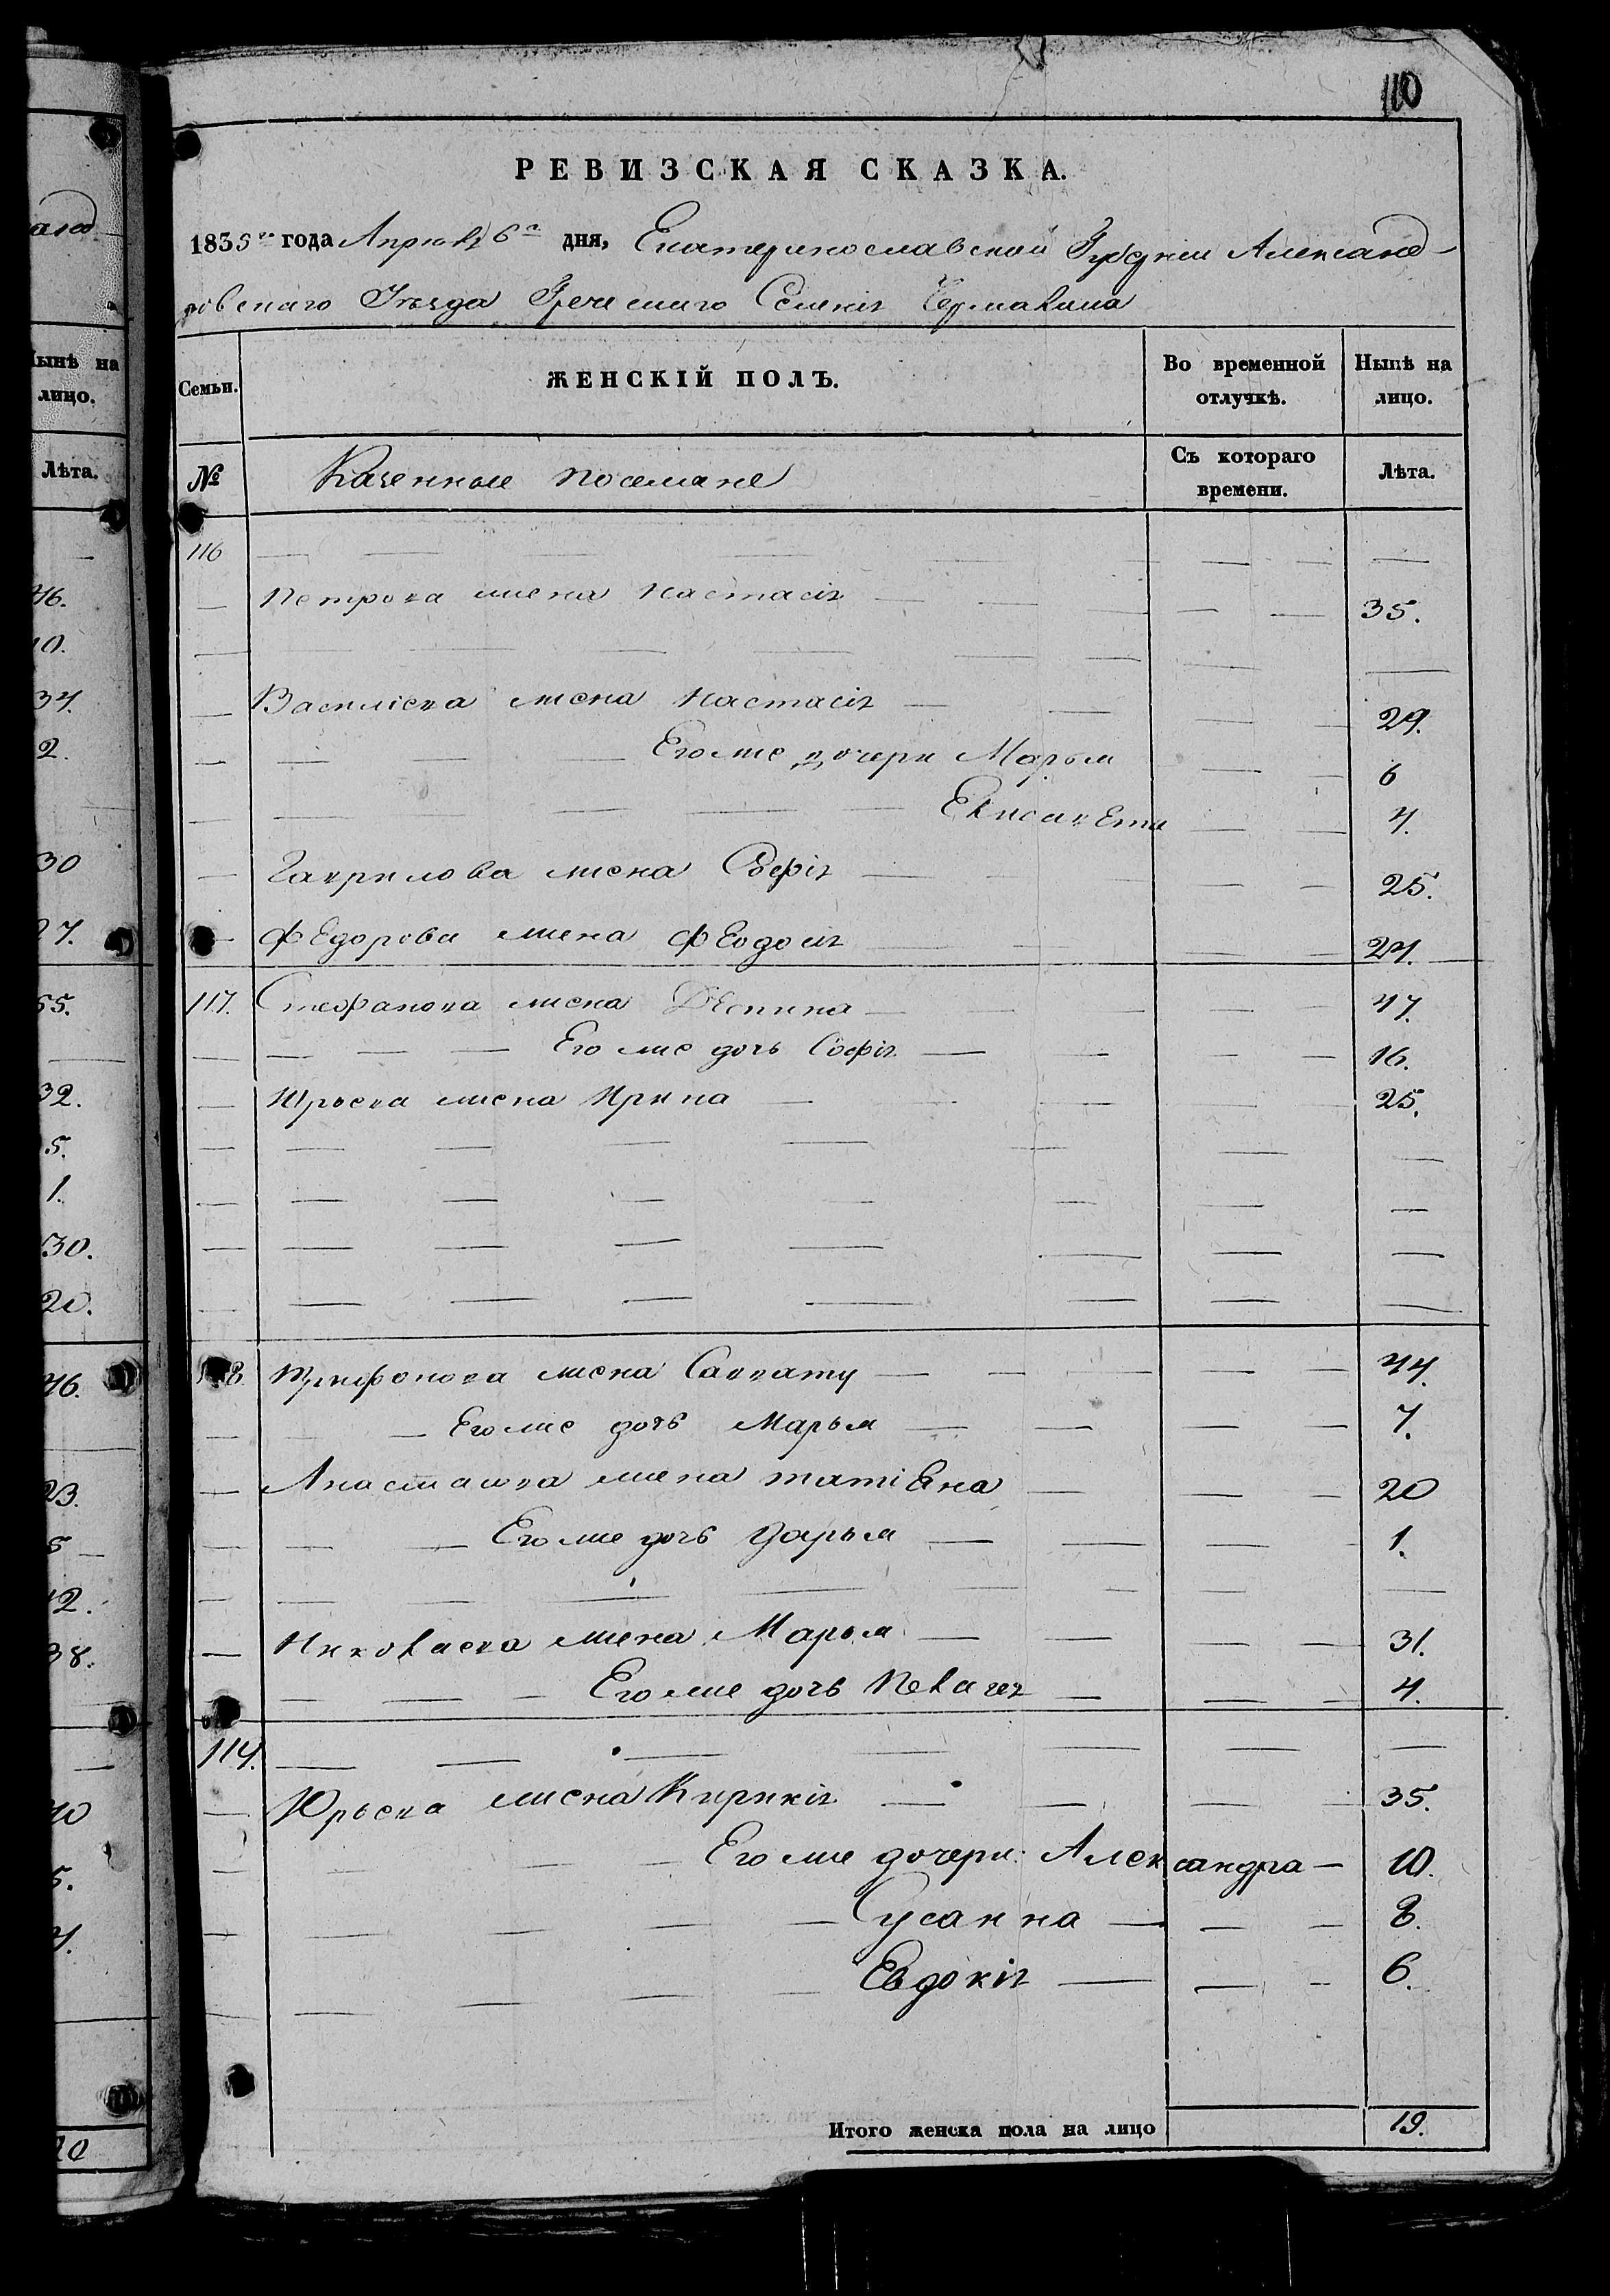 110
РЕВИЗСКАЯ СКАЗКА.
1835го года Апреля 6го дня, Екатеринославской Губерніи Александ-
ровскаго Уѣзда Греческаго Селенія Чермалика
Семьи. ЖЕНСКІЙ ПОЛЪ. Во временной отлучкѣ. Нынѣ на лицо.
№ Казенные поселяне Съ котораго времени. Лѣта.
116
Петрова жена Настасія 35.
Василіева жена Настасія 29.
Его же дочери Марья 6
Елисавета 4.
Гаврилова жена Софія 25.
Федорова жена Феодосія 24.
117. Стефанова жена Деспина 47.
Его же дочь Софія 16.
Юрьева жена Ирина 25.
118. Трифонова жена Саввату 44.
Его же дочь Марья 7.
Анасташва жена Татіана 20
Его же дочь Дарья 1.
Николаева жена Марья 31.
Его же дочь Пелагея 4.
114.
Юрьева жена Кирикія 35.
Его же дочери: Александра 10.
Сусанна 8.
Евдокія 6.
Итого женска пола на лицо 19.
Нынѣ на лицо.
Лѣта.